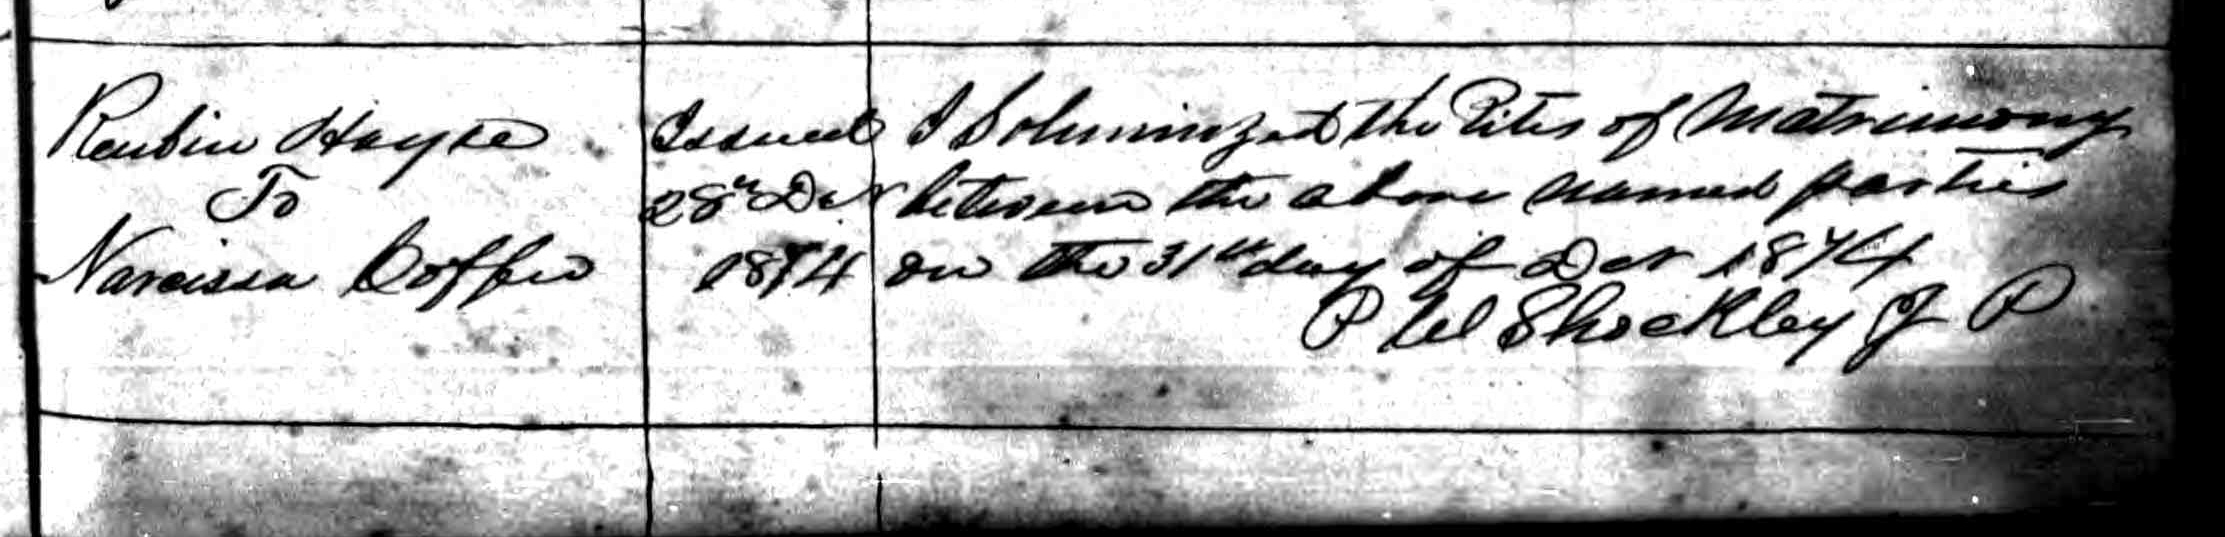 Reubin Hayse
To
Narcissa Coffee
Issued
28th Dec
1874
I Soluminized the Rites of Matrimony
between the above named parties
on the 31st day of Dec 1874
P W Shockley J P